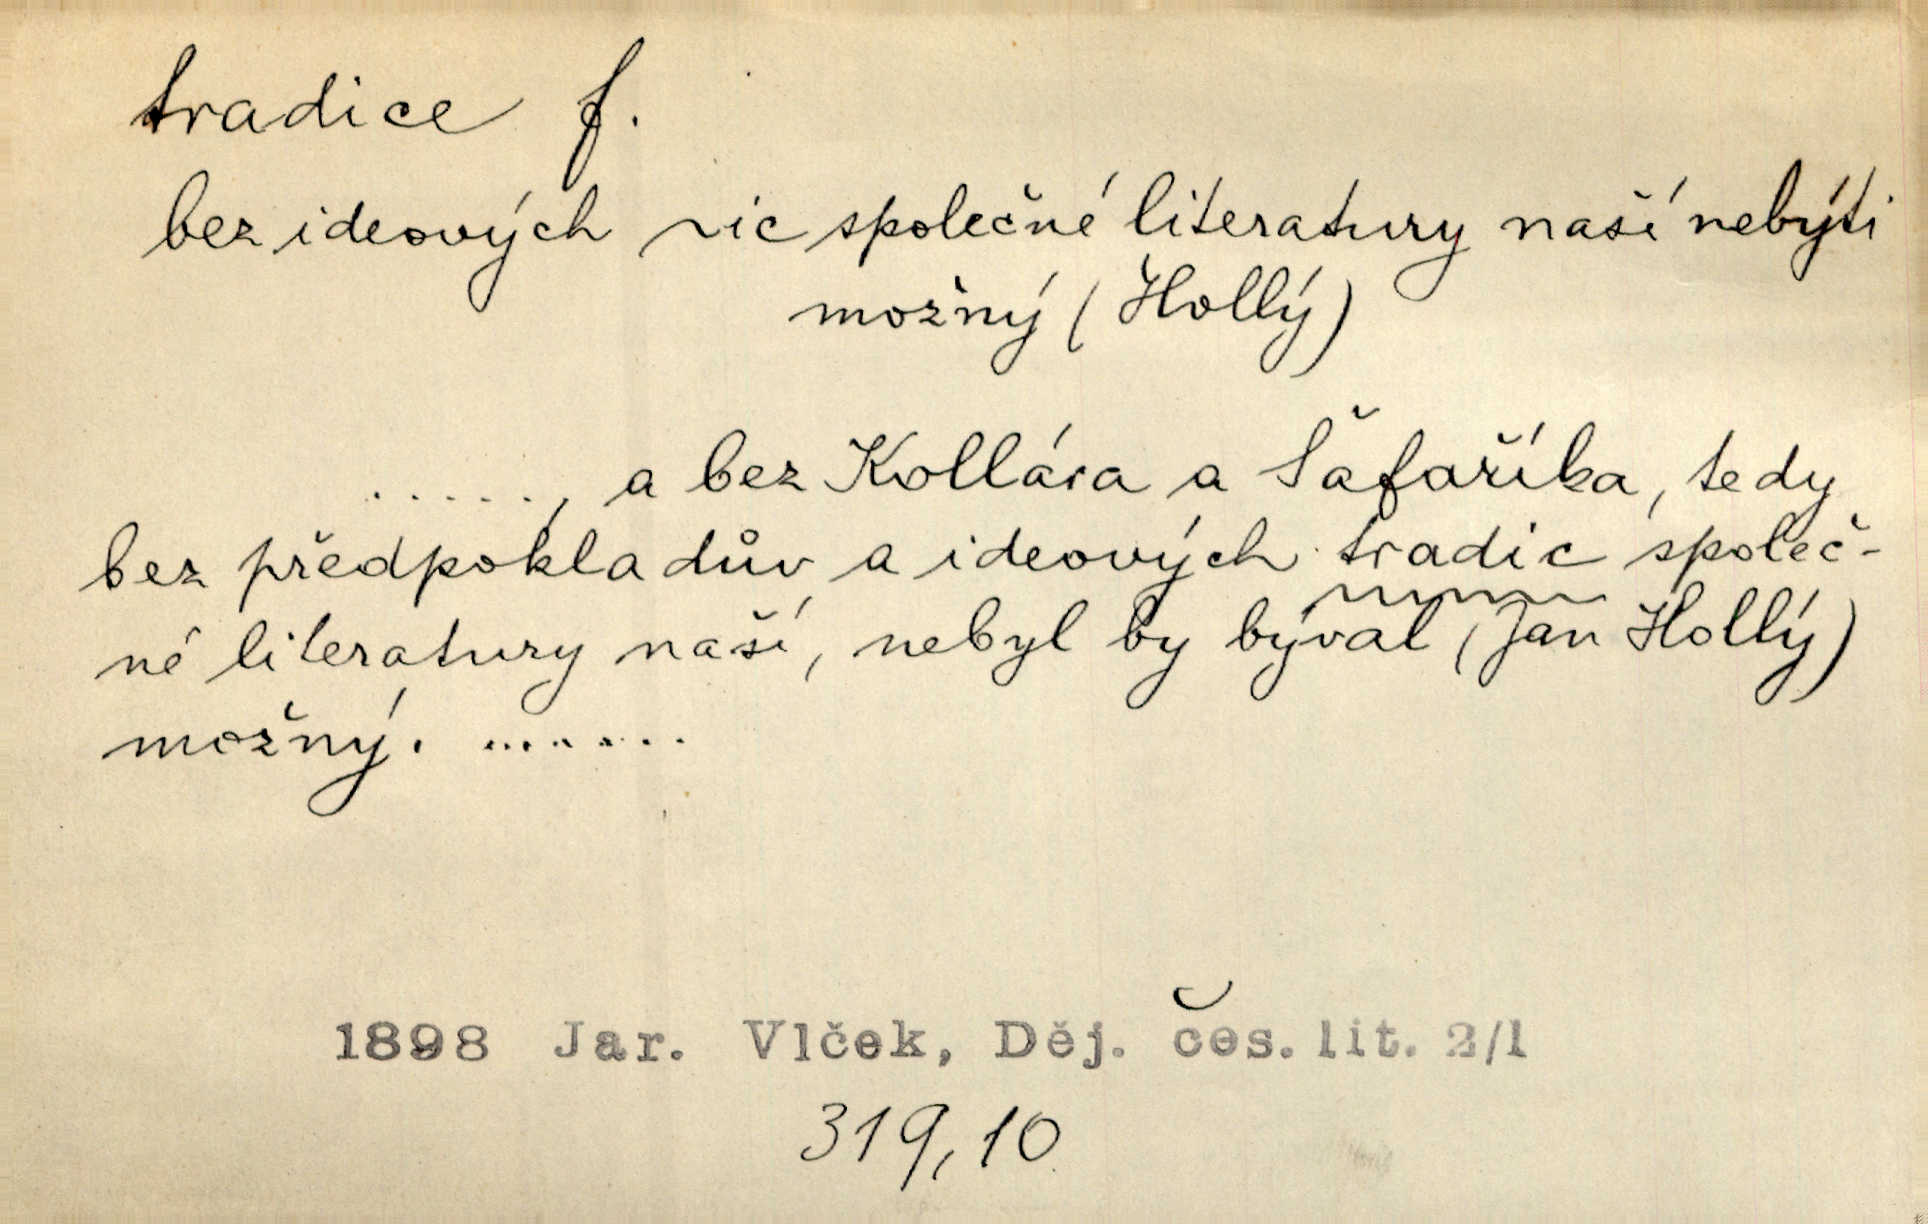 tradice f.
bez ideových ~ic společné literatury naší nebýti
možný (Hollý)
......, a bez Kollára a Šafaříka, tedy
bez předpokladův a ideových tradic společ-
né literatury naší, nebyl by býval (Jan Hollý)
možný. .......
1898 Jar. Vlček, Děj. čes. lit. 2/1
319,10